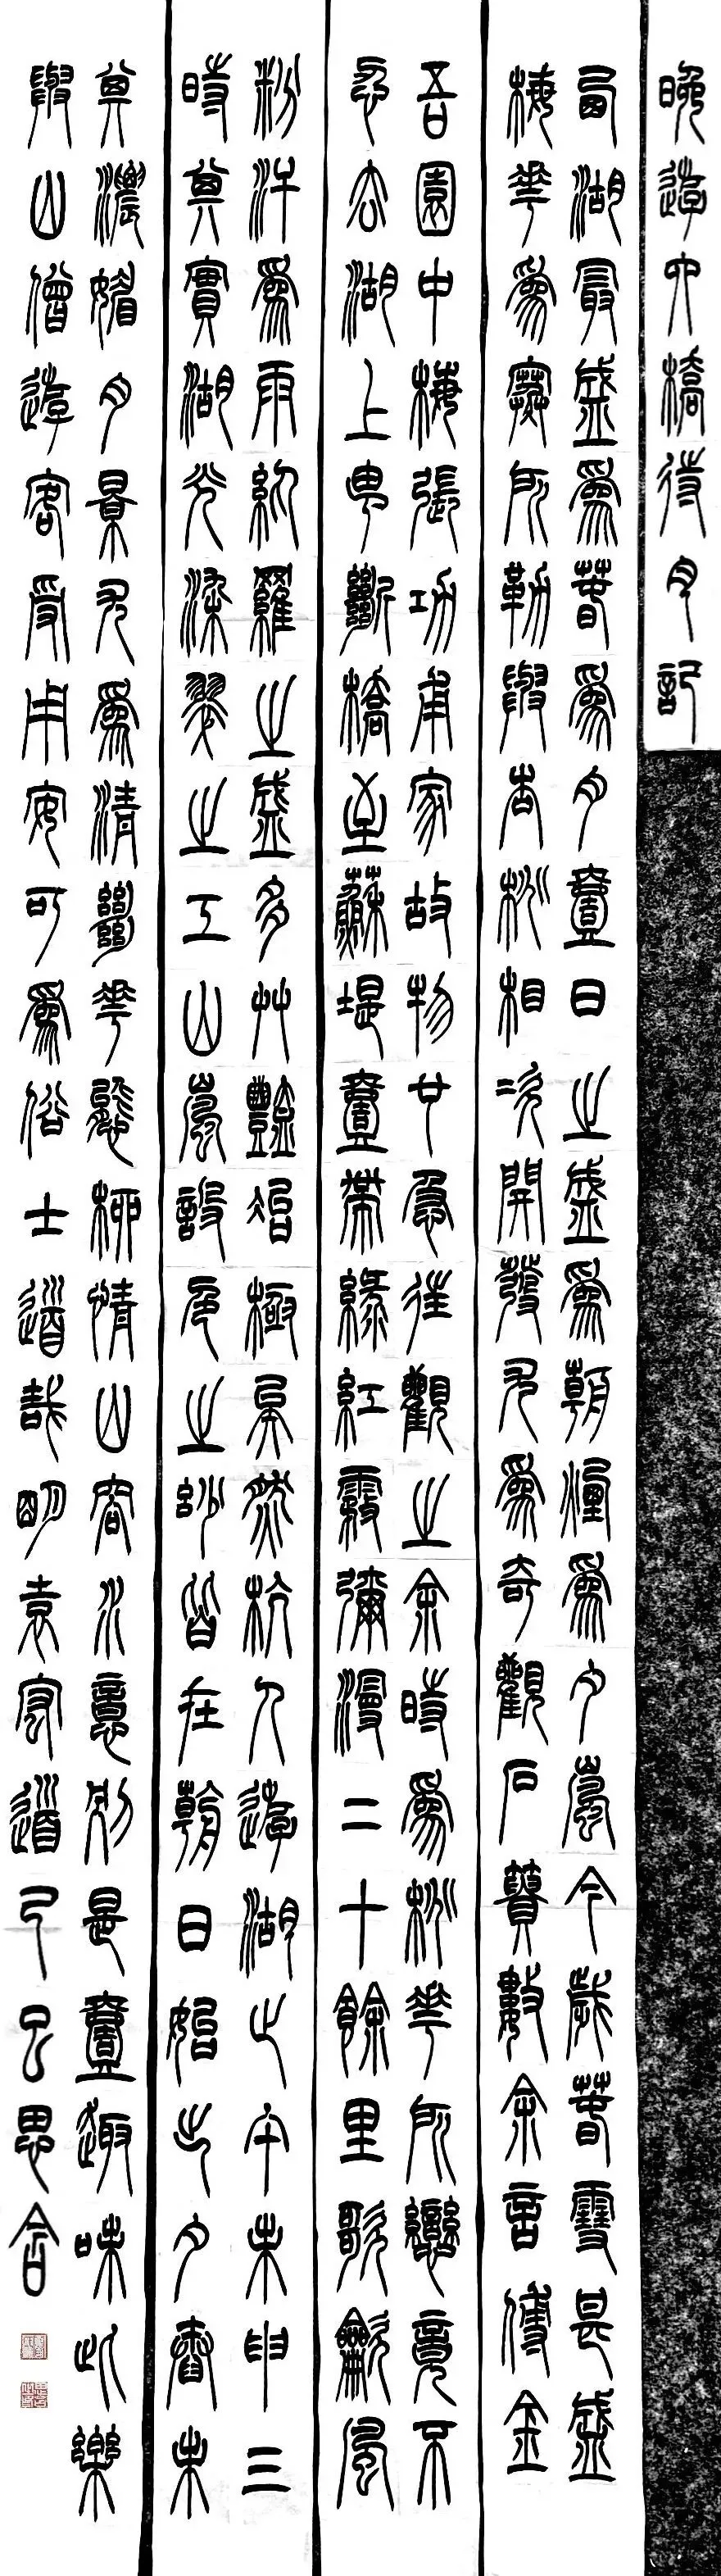 晚遊六橋待月記
西湖最盛為春為月壹日之盛為朝煙為夕嵐今歲春雪甚盛
梅花為寒所勒與杏桃相次開發尤為奇觀石簣數余言傅金
吾園中梅張功甫家故物也急往觀之余時為桃花所戀竟不
忍去湖上由斷橋至蘇堤壹帶綠紅霧彌漫二十餘里歌龡風
粉汗為雨紈羅之盛多艸豔冶極矣然杭人遊湖止午未申三
時其實湖光染翠之工山嵐設色之妙皆在朝日始出夕舂未
其濃媚月景尤為清絕花態柳情山容水意別是壹趣味此樂
與山僧遊客受用安可為俗士道哉明袁宏道